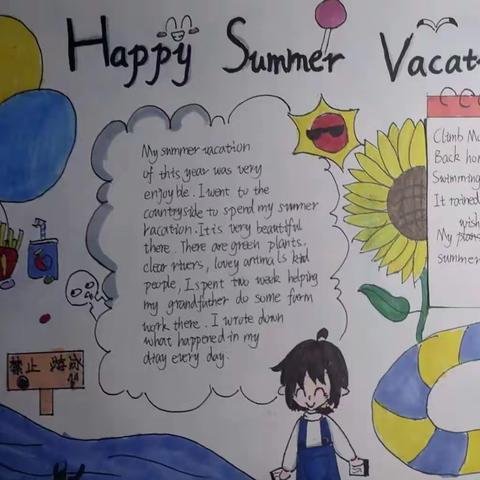 Happy Summer Vacat
My summer vacation
of this year was very
enjoyble. I went to the
countryside to spend my summer
vacation. It is very beautiful
there. There are green plants,
clear rivers, lovey animals kind
people, I spent two week helping
my grandfather do some farm
work there. I wrote down
what happened in my
diay every day.
Climb Mo
Back hom
Swimming
It rained
wish
My plans
summer
禁止 游泳